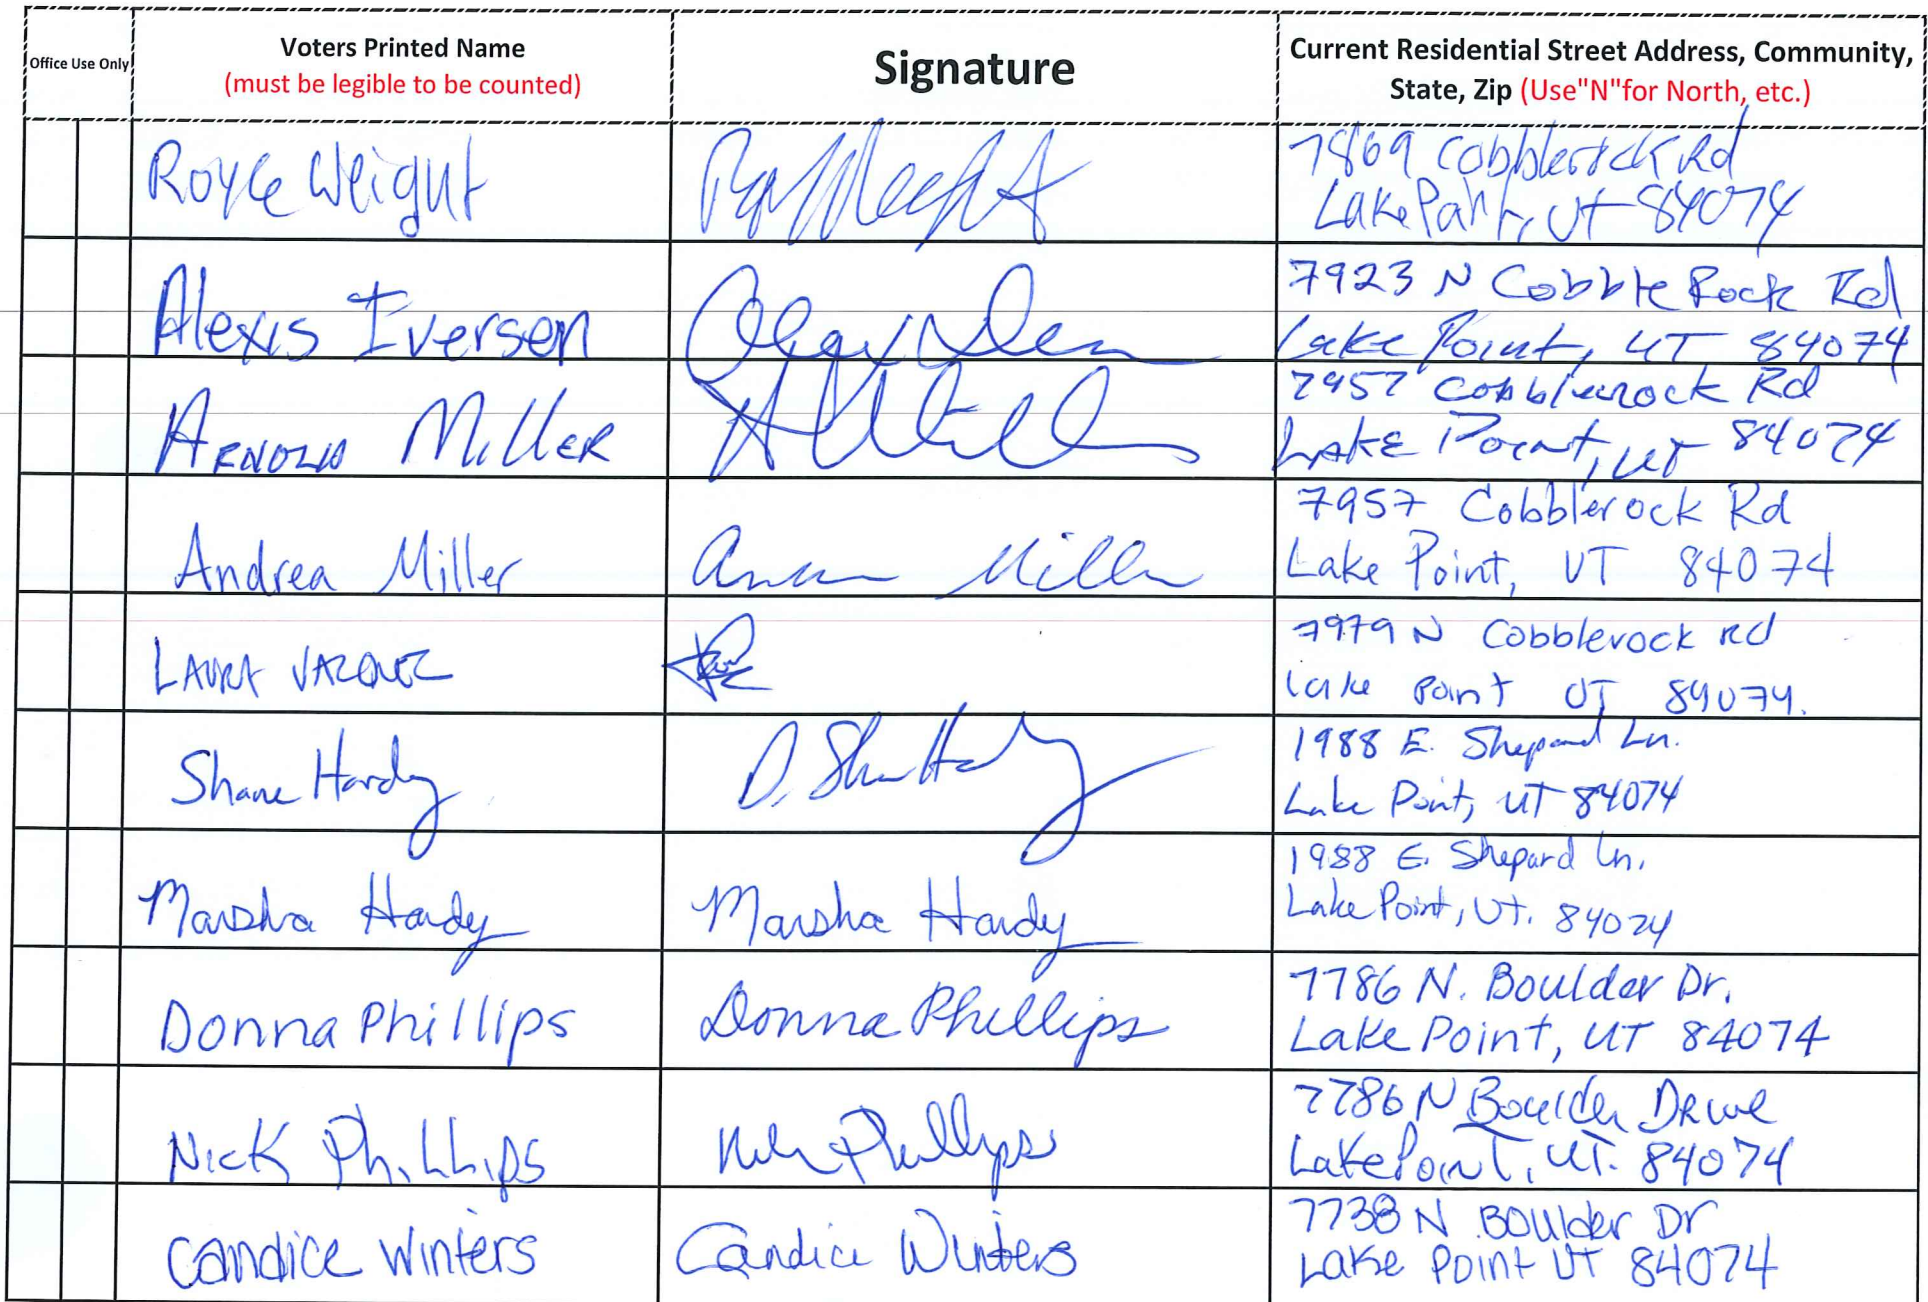 Office Use Only
Voters Printed Name
(must be legible to be counted)
Signature
Current Residential Street Address, Community,
State, Zip (Use"N"for North, etc.)
Royce Weight
7869 Cobblerock Rd
Lake Point, UT 84074
Alexis Iversen
7923 N Cobble Rock Rd
Lake Point, UT 84074
Arnold Miller
7957 Cobblerock Rd
Lake Point, UT 84074
Andrea Miller
Miller
7957 Cobblerock Rd
Lake Point, UT 84074
LAURA VAZQUEZ
7979 N Cobblerock Rd
lake point UT 84074.
Shane Hardy
D. Shane Hardy
1988 E. Shepard Ln.
Lake Point, UT 84074
Marsha Hardy
Marsha Hardy
1988 E. Shepard Ln.
Lake Point, UT. 84074
Donna Phillips
Donna Phillips
7786 N. Boulder Dr.
Lake Point, UT 84074
Nick Phillips
Nick Phillips
7786 N Boulder Drive
Lake Point, UT. 84074
Candice Winters
Candice Winters
7738 N Boulder Dr
Lake Point UT 84074